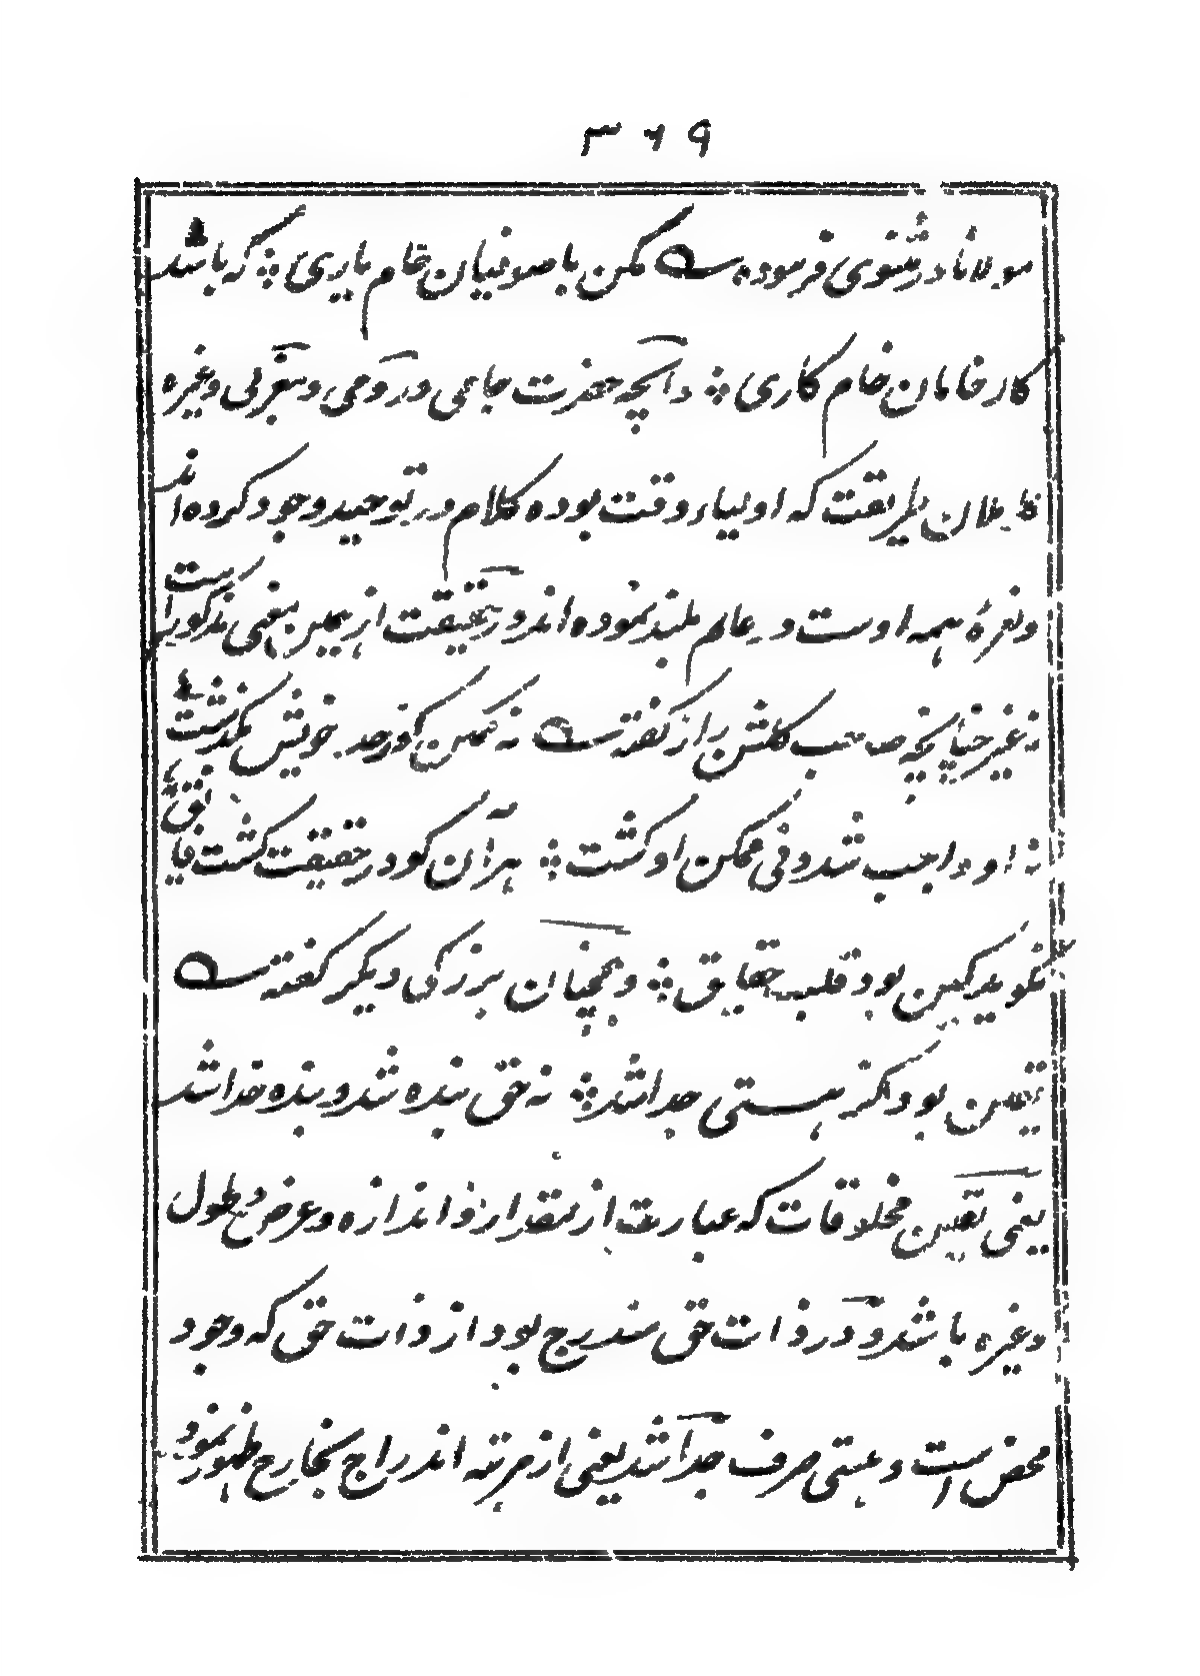 ۳۶۹
مولانا در مثنوی فرموده مکن با صوفیان خام یاری ؞ که باشد
کار خامان خام کاری ؞ و آنچه حضرت جامی و رومی و مغربی وغیره
طریقت که اولیاء وقت بوده کلام در توحید وجود کرده اند
و نعرهٔ همه اوست در عالم بلند نموده اند در حقیقت از همین معنی مذکور است
نه غیر چنانچه صاحب گلشن راز گفته نه ممکن کو ز حد خویش بگذشت
نه او واجب شد و نی ممکن او گشت ؞ هر آن کو در حقیقت گشت فایق
نگوید کین بود قلب حقایق ؞ و همچنان بزرگی دیگر گفته
تعین بود کز هستی جدا شد ؞ نه حق بنده شد و بنده خدا شد
یعنی تعین مخلوقات که عبارت از مقدار و اندازه و عرض و طول
وغیره باشد و در ذات حق مندرج بود از ذات حق که وجود
محض است و هستی صرف جدا شد یعنی از مرتبه اندراج بخارج ظهور نمود